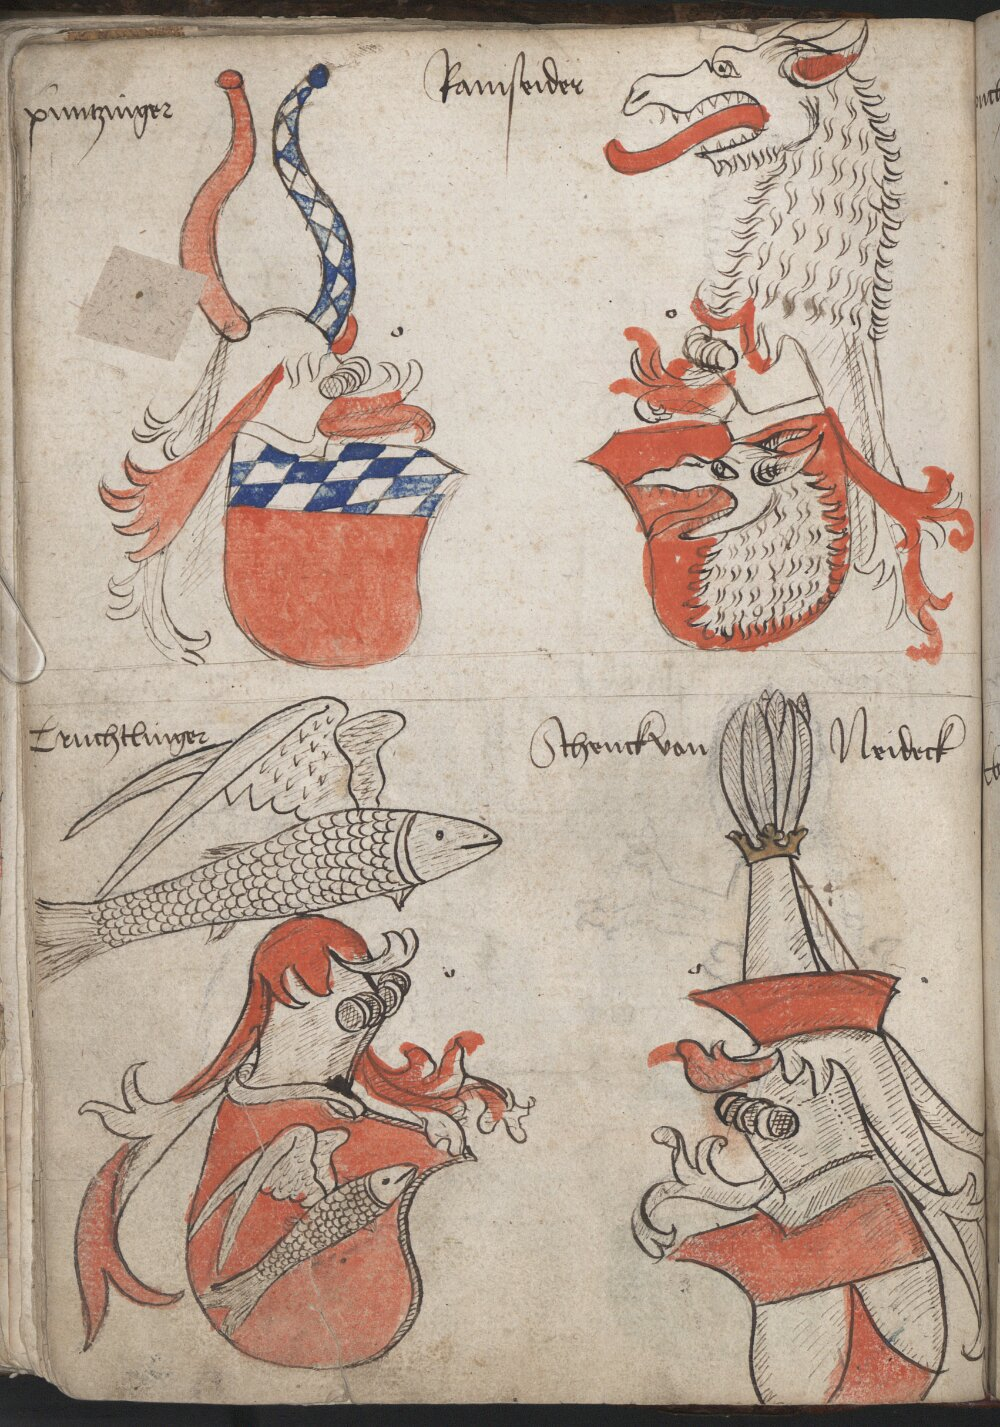 püntzinger
Ramseider
Truchtlinger
Schenck von Neideck